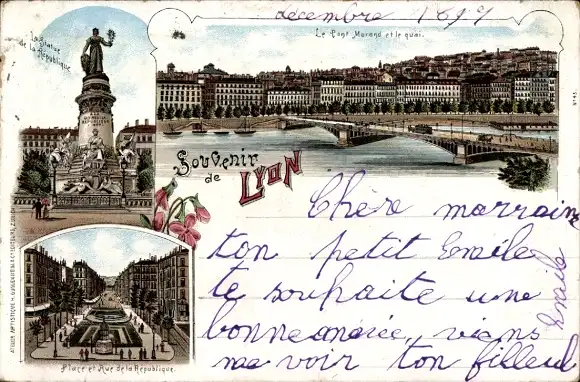 décembre 1897
La Statue
de la République.
Le Pont Morand et le quai.
Souvenir
de
Lyon
Chère marraine
ton petit Emile
te souhaite une
bonne année, viens
me voir ton filleul
Emile
Place et Rue de la République.